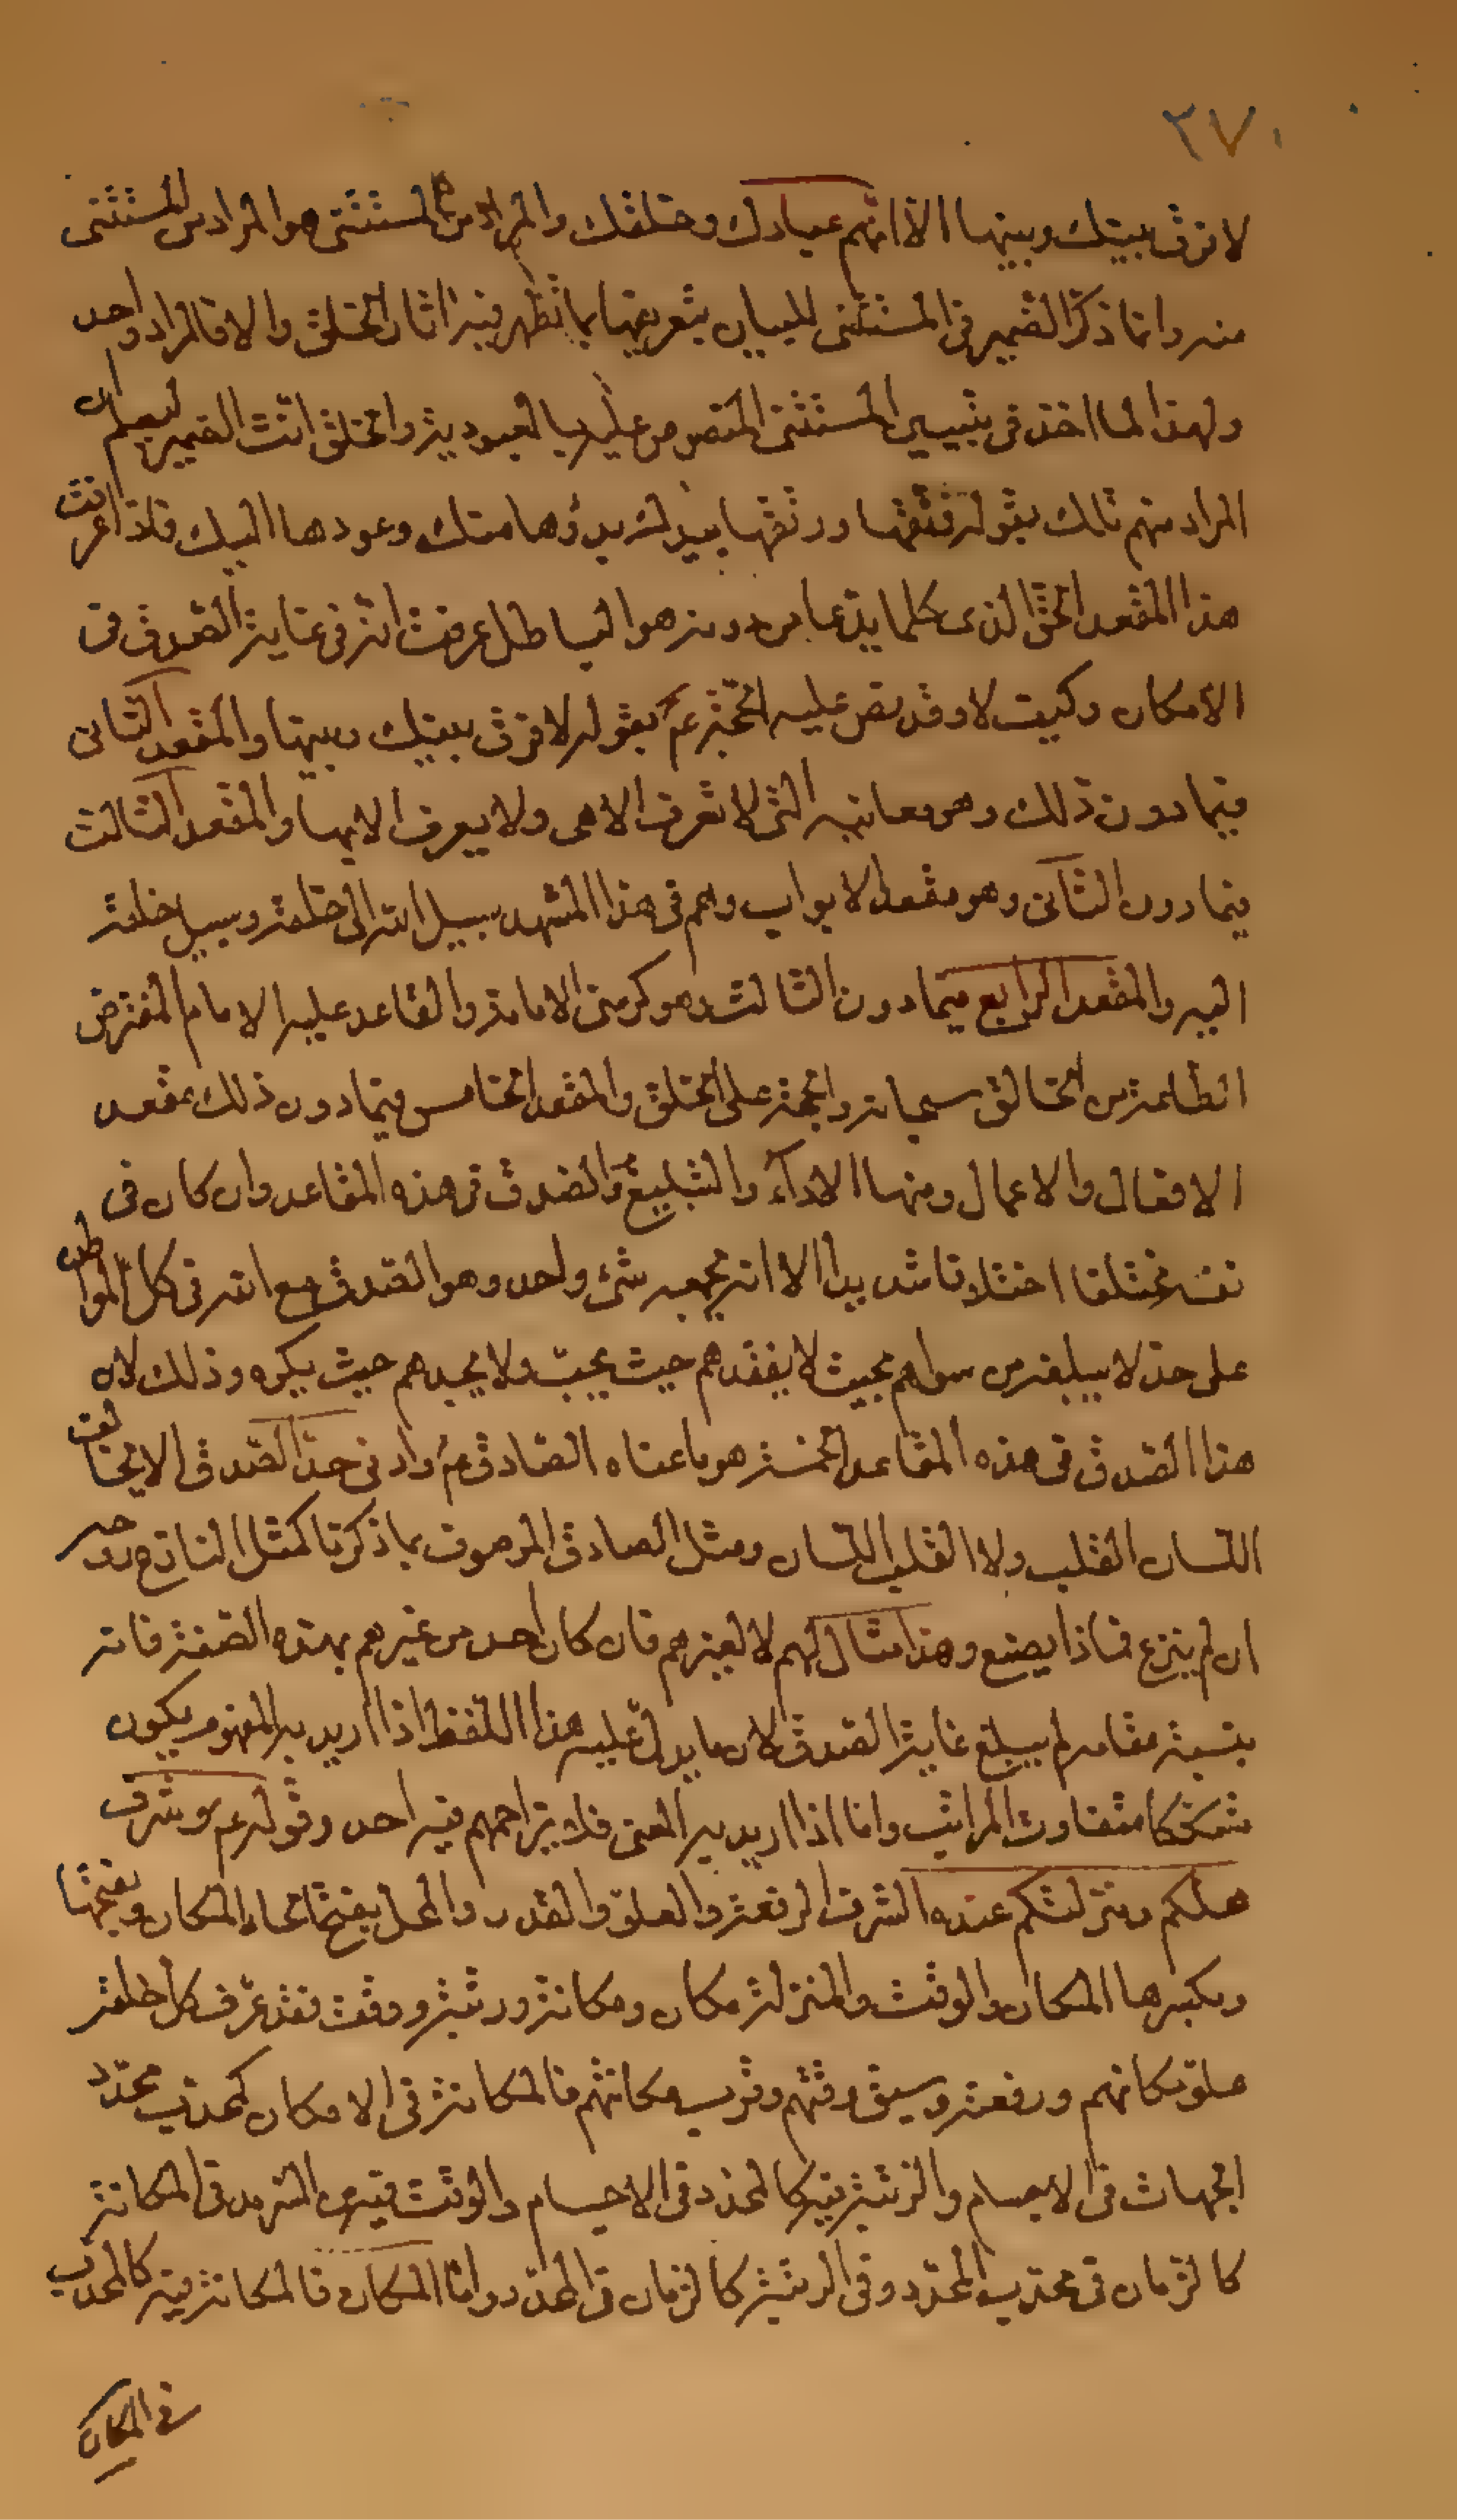 ٢٧٠
لا فرق بينك وبينها الا انهم عبادك وخلقك والمراد من المستثنى هو المراد من المستثنى
منه وانما ذكر الضمير فى المستثنى للبيان بتعريفها بما تظهر فيه اثار الخلق والا فالمراد واحد
ولهذا لما اخذ فى تبيين المستثنى المنصوص عليه بالعبودية والخلق انث الضمير ليعلم ان
المراد منهم تلك بقوله فتقها ورتقها بيدك بدؤها منك وعودها اليك فاذا عرفت
هذا المقعد الحق الذى كلما يدعا من دونه هو الباطل عرفت انه فى غاية الصدق فى
الامكان وكيف لا وقد نص عليه الحجة عم بقوله لا فرق بينك وبينها والمقعد الثانى
فيما دون ذلك وهو معانيه التى لا تعرف الا هى ولا يعرف الا بها والمقعد الثالث
فيما دون الثانى وهو مقعد الابواب وهم فى هذا المشهد سبيل الله الى خلقه وسبيل خلقه
اليه والمقعد الرابع فيما دون الثالث وهو كرسى الامامة والقاعد عليه الامام المفترض
الطاعة من الخالق سبحانه والحجة على الخلق والمقعد الخامس فيما دون ذلك مقعد
الافعال والاعمال ومنها الاداء والتبليغ والصدق فى هذه المقاعد وان كان فى
نفسه مختلفا اختلافا شديدا الا انه يجمعه شئ واحد وهو الصدق مع الله فى كل المواطن
على حد لا يبلغه من سواهم بحيث لا يفقدهم حيث يحب ولا يجدهم حيث يكره وذلك لان
هذا الصدق فى هذه المقاعد الخمسة هو ما عناه الصادق ع وادنى حد الصدق الا يخالف
اللسان القلب ولا القلب اللسان ومثل الصادق الموصوف بما ذكرنا كمثل النازع روحه
ان لم ينزع فماذا يصنع وهذا مثال لهم لا لغيرهم فان كان احد من غيرهم بهذه الصفة فانه
بنسبة مقامه لم يبلغ غاية الصدق لان ما يدل عليه هذا اللفظ اذا اريد به المفهوم يكون
مشككا متفاوت المراتب واما اذا اريد به المعنى فلا يزاحمهم فيه احد وقوله عم وشرف
محلكم ومنزلتكم عنده الشرف الرفعة والعلو والقدر والمحل بفتح الحاء المكان وبفتحها
وبكسرها المكان والوقت والمنزلة مكان ومكانة ورتبة ووقت فقد عرف كل خلقه
علو مكانهم ورفعته وسبق وقتهم وقرب مكانتهم فالمكانة فى الامكان كمحدب محدد
الجهات فى الاجسام والرتبة فيه كالمحدد فى الاجسام والوقت فيه هى السرمد فى المكانة
كالزمان فى محدب المحدد وفى الرتبة كالزمان فى المحدد واما المكان فالمكانة فيه كالمحدب
فى المكان